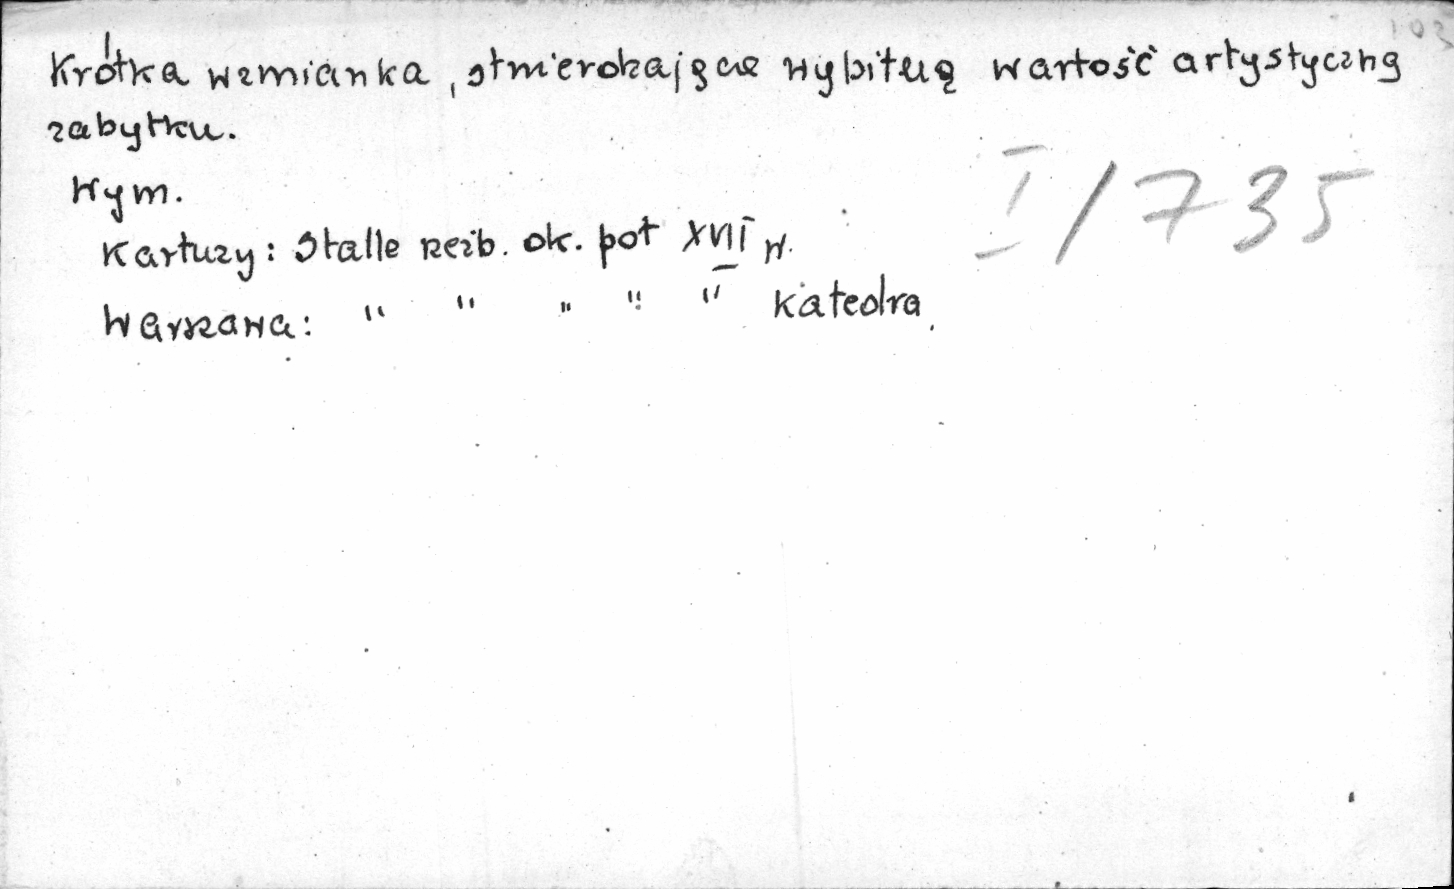 103
Krótka wzmianka, stwierdzająca wybitną wartość artystyczną
zabytku.
I/735
Wym.
Kartuzy: Stalle rzeźb. ok. poł XVII w.
Warszawa: " " " " " Katedra